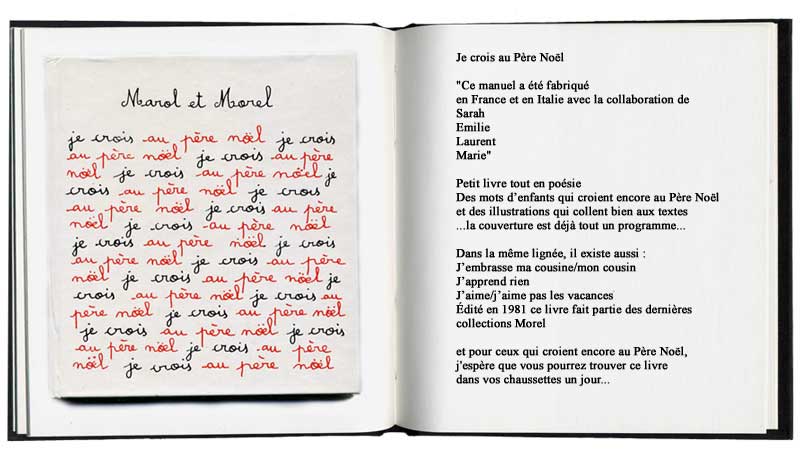 Marol et Morel
je crois au père noël je crois
au père noël je crois au père
noël je crois au père noël je
crois au père noël je crois
au père noël je crois au père
noël je crois au père noël
je crois au père noël je crois
au père noël je crois au père
noël je crois au père noël je
crois au père noël je crois au
père noël je crois au père noël
je crois au père noël je crois
au père noël je crois au père
noël je crois au père noël
Je crois au Père Noël
"Ce manuel a été fabriqué
en France et en Italie avec la collaboration de
Sarah
Emilie
Laurent
Marie"
Petit livre tout en poésie
Des mots d'enfants qui croient encore au Père Noël
et des illustrations qui collent bien aux textes
...la couverture est déjà tout un programme...
Dans la même lignée, il existe aussi :
J'embrasse ma cousine/mon cousin
J'apprend rien
J'aime/j'aime pas les vacances
Édité en 1981 ce livre fait partie des dernières
collections Morel
et pour ceux qui croient encore au Père Noël,
j'espère que vous pourrez trouver ce livre
dans vos chaussettes un jour...